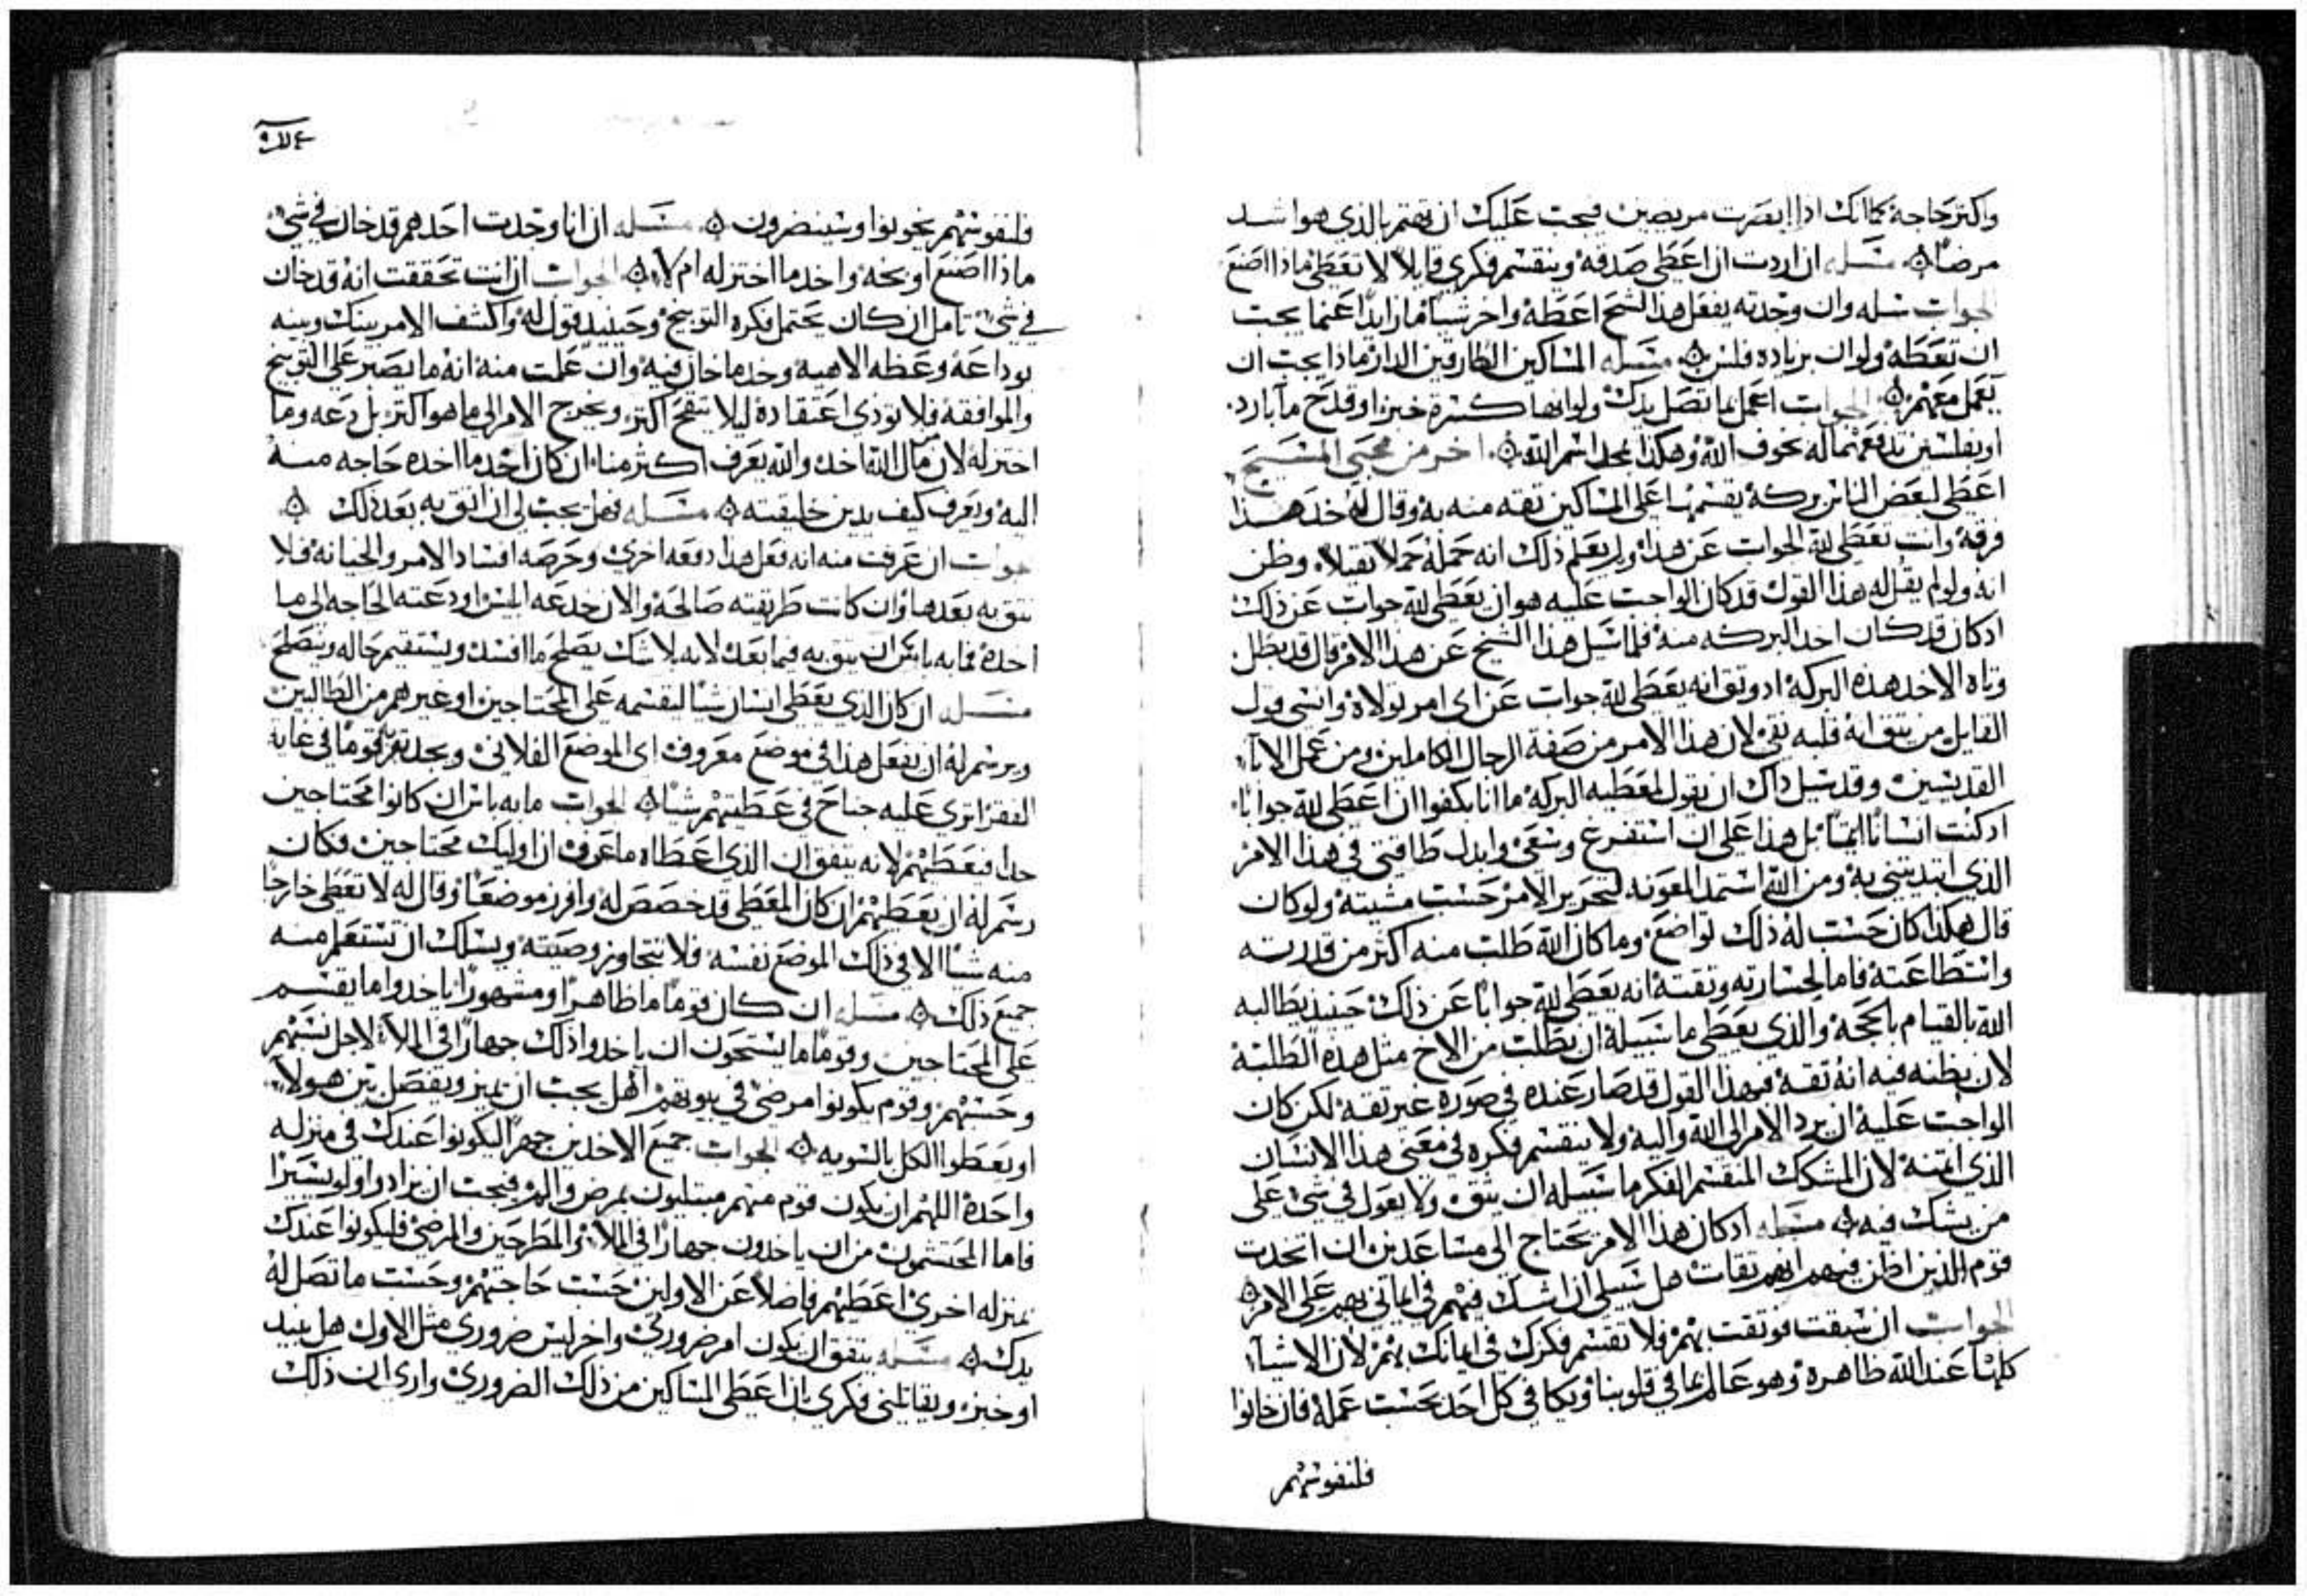 واكثر حاجة كما انك اذا ابصرت مريضين فيجب عليك ان تهتم بالذي هو اشد
مرضا مسله ان اردت ان اعطي صدقه وينقسم فكري قايلا لا تعطي ماذا اصنع
الجواب سله وان وجدته يفعل هذا لشح اعطه واخر شيا ما زايدا عنما يجب
ان تعطه ولو ان بزياده فلس مسله المساكين الطارقين الدار ماذا يجب ان
يعمل معهم الجواب اعمل بما تصل يدك ولو انها كسرة خبز او قدح ما بارد
او بفلسين تدفعهما له بخوف الله وهكذا يمجد اسم الله اخر من محبي المسيح
اعطي لبعض الناس بركة يقسمها على المساكين ثقه منه به وقال له خذ هذا
فرقه وانت تعطي لله الجواب عن هذا ولم يعلم ذلك انه حمله حملا ثقيلا وظن
انه ولو لم يقل له هذا القول قد كان الواجب عليه هو ان يعطي لله جواب عن ذلك
اد كان قد كان اخد البركه منه فلما سيل هذا الشيخ عن هذا الامر قال قد بطل
وتاه الاخد هذه البركة اد وثق انه يعطي لله جواب عن اى امر تولاه وانسى قول
القايل من يثق انه قلبه نقي لان هذا الامر من صفة الرجال الكاملين ومن عمل الابآ
القديسين وقد سيل داك ان يقول لمعطيه البركة ما انا بكفوا ان اعطي لله جوابا
ادكنت انسانا ايتمانل هذا على ان استفرغ وسعي وابدل طاقتي في هذا الامر
الذي ابتديتني به ومن الله استمد المعونه لتحرير الامر حسب مشيته ولو كان
قال هكذا كان حسب له ذلك تواضع وما كان الله طلب منه اكثر من قدرته
وانتطاعته فاما لجسارته وثقته انه يعطي لله جوابا عن ذلك حينيد يطالبه
الله بالقيام بالحجه والذي يعطي ما سبيله ان يطلب من الاخ مثل هذه الطلبة
لان بظنه فيه انه ثقه فهذا القول قد صار عنده في صورة غير ثقه لكن كان
الواجب عليه ان يرد الامر الي الله واليه ولا ينقسم فكره في معنى هذا الانسان
الذي ايتمنه لان المشكك المنقسم الفكر ما سبيله ان يثق ولا يعول في شئ على
من يشك فيه مسله ادكان هذا الامر يحتاج الى مساعدين ان اتخدت
قوم الذين اظن فيهم انهم ثقات هل سبيلي ان اشك فيهم في ايماني بهم على الامر
الجواب ان سبقت فوثقت بهم فلا تقسم فكرك في ايمانك بهم لان الاشيآ
كلها عند الله ظاهرة وهو عالم بما في قلوبنا ويكافي كل احد بحسب عمله فان خانوا
فلنفوسهم
فلنفوسهم يخونوا وسينضرون مسله ان انا وجدت احدهم قد خان في شئ
ماذا اصنع اوبخه واخد ما اختزله ام لا الجواب ان انت تحققت انه قد خان
في شئ تامل ان كان يحتمل فكره التوبيخ وحينيد قول له واكشف الامر بينك وبينه
بوداعة وعظه الاهيه وخد ما خان فيه وان علمت منه انه ما يصبر على التوبيخ
والموافقه فلا توذي اعتقاده ليلا يتقح اكثر ويخرج الامر الي ما هو اكثر بل دعه وما
اختزله لان مال الله اخد والله يعرف اكثر منا ان كان اخد ما اخده حاجه منه
اليه ويعرف كيف يدين خليقته مسله فهل يجب لي ان اثق به بعد ذلك
جواب ان عرفت منه انه فعل هذا دفعه اخرى وحرصه افساد الامر والخيانه فلا
تثق به بعدها وان كانت طريقته صالحة والان خدعه ابليس او دعته الحاجه الي ما
اخده فما به باس ان يثق به فيما بعد لانه بلا شك يصلح ما افسد ويستقيم حاله وينصلح
مسله ان كان الذي يعطي انسان شيا ليقسمه على المحتاجين او غيرهم من الطالبين
ويرسم له ان يفعل هذا في موضع معروف اى الموضع الفلاني ويجد قوما في غاية
الفقر اترى عليه جناح في عطيتهم شيا الجواب ما به باس ان كانوا محتاجين
جدا فيعطيهم لانه يتفق ان الذي اعطاه ما عرف ان اوليك محتاجين فكان
رسم له ان يعطيهم ان كان المعطي قد خصص له وافرز موضعا وقال له لا تعطي خارجا
منه شيا الا في ذلك الموضع نفسه فلا تتجاوز وصيته ويسلك ان تستعلم منه
جميع ذلك مسله ان كان قوما ما ظاهرا ومشهورا ياخدوا ما يقسم
على المحتاجين وقوما ما يستحون ان ياخدوا ذلك جهارا في الملا لاجل نسبهم
وحسبهم وقوم يكونوا مرضى في بيوتهم اهل يجب ان يميز ويفصل بين هولآ
او يعطوا الكل بالسويه الجواب جميع الاخدين جهرا ليكونوا عندك في منزله
واحدة اللهم ان يكون قوم منهم مبتليون بمرض والم فيجب ان يزادوا ولو يسيرا
فاما المحتشمون من ان ياخدون جهارا في الملا والمطرحين والمرضى فليكونوا عندك
بمنزله اخرى اعطيهم فاضلا عن الاولين حسب حاجتهم وحسب ما تصل له
يدك مسله يتفق ان يكون امر ضروري واخر ليس ضروري مثل الاول هل نبيد
او خبز ويقاتلني فكري بان اعطي المساكين من ذلك الضروري وارى ان ذلك